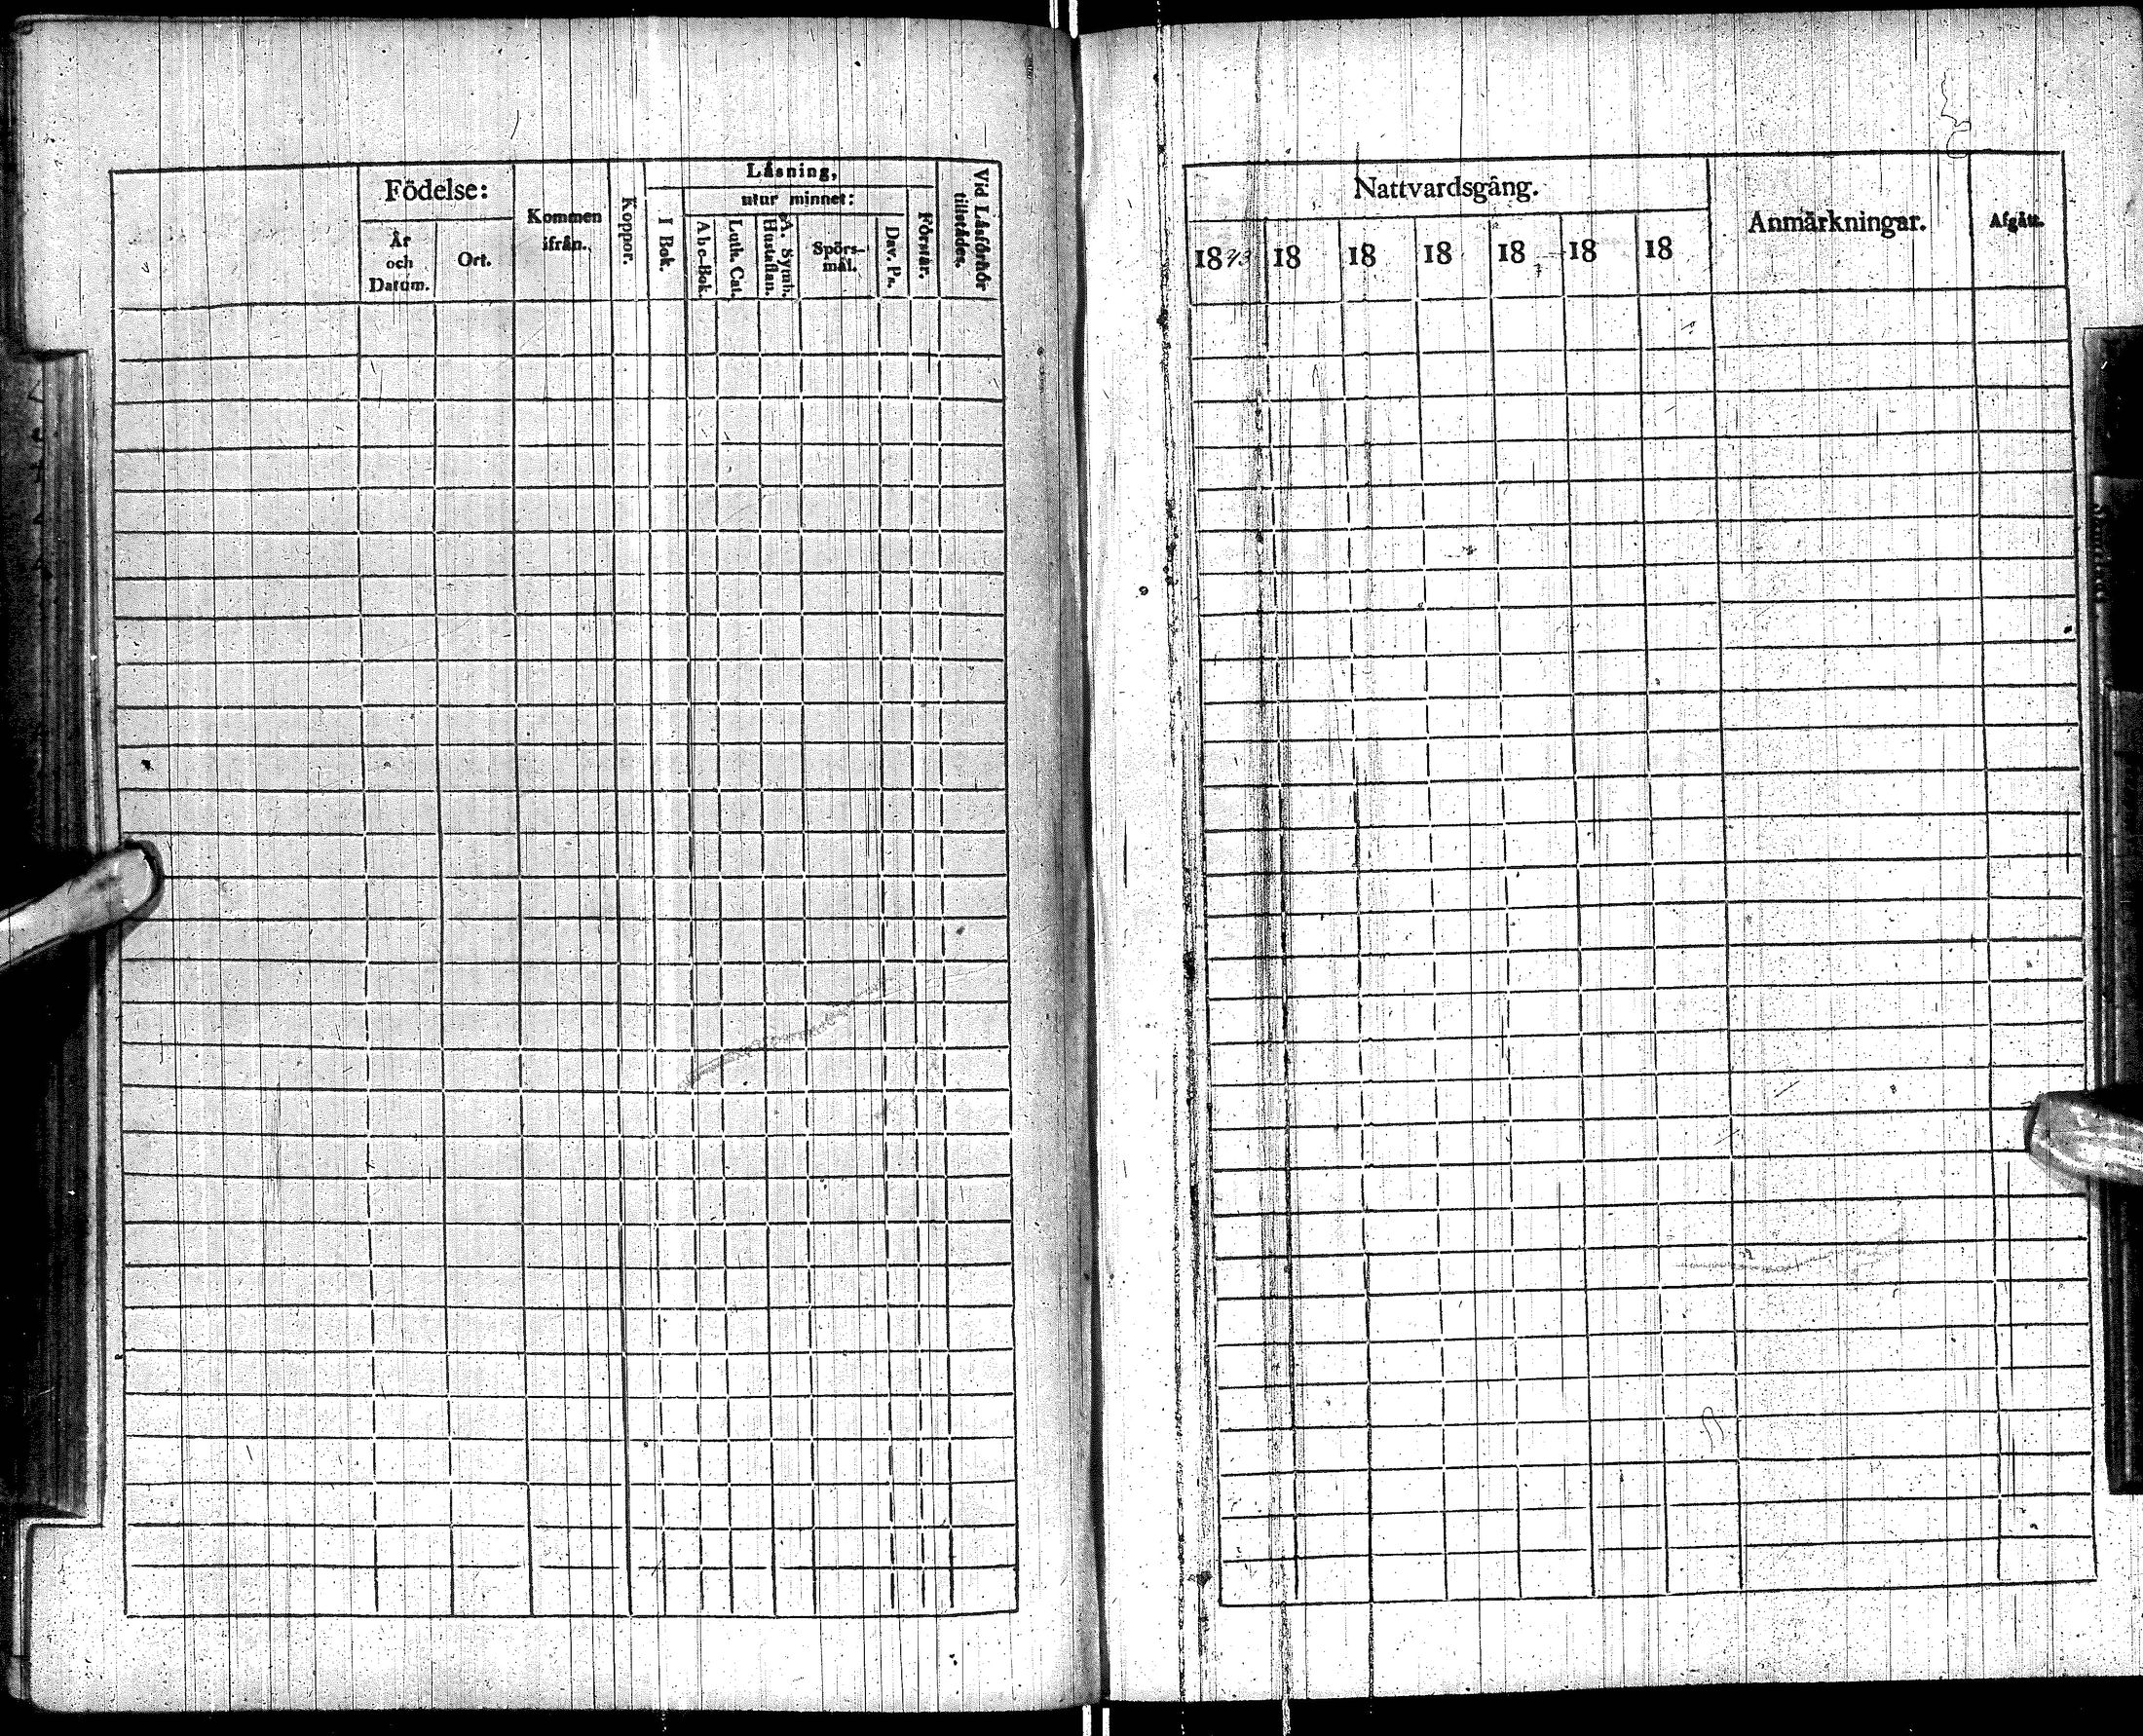 Födelse:
År och Datum.
Ort.
Kommen ifrån.
Koppor.
Läsning,
I Bok.
utur minnet:
Abc-Bok.
Luth. Cat.
A. Symb. Hustaflan.
Spörs-mål.
Dav. Ps.
Förstår.
Vid Läsförhör tillstädes.
Nattvardsgång.
18 18 18 18 18 18 18
Anmärkningar.
Afgått.